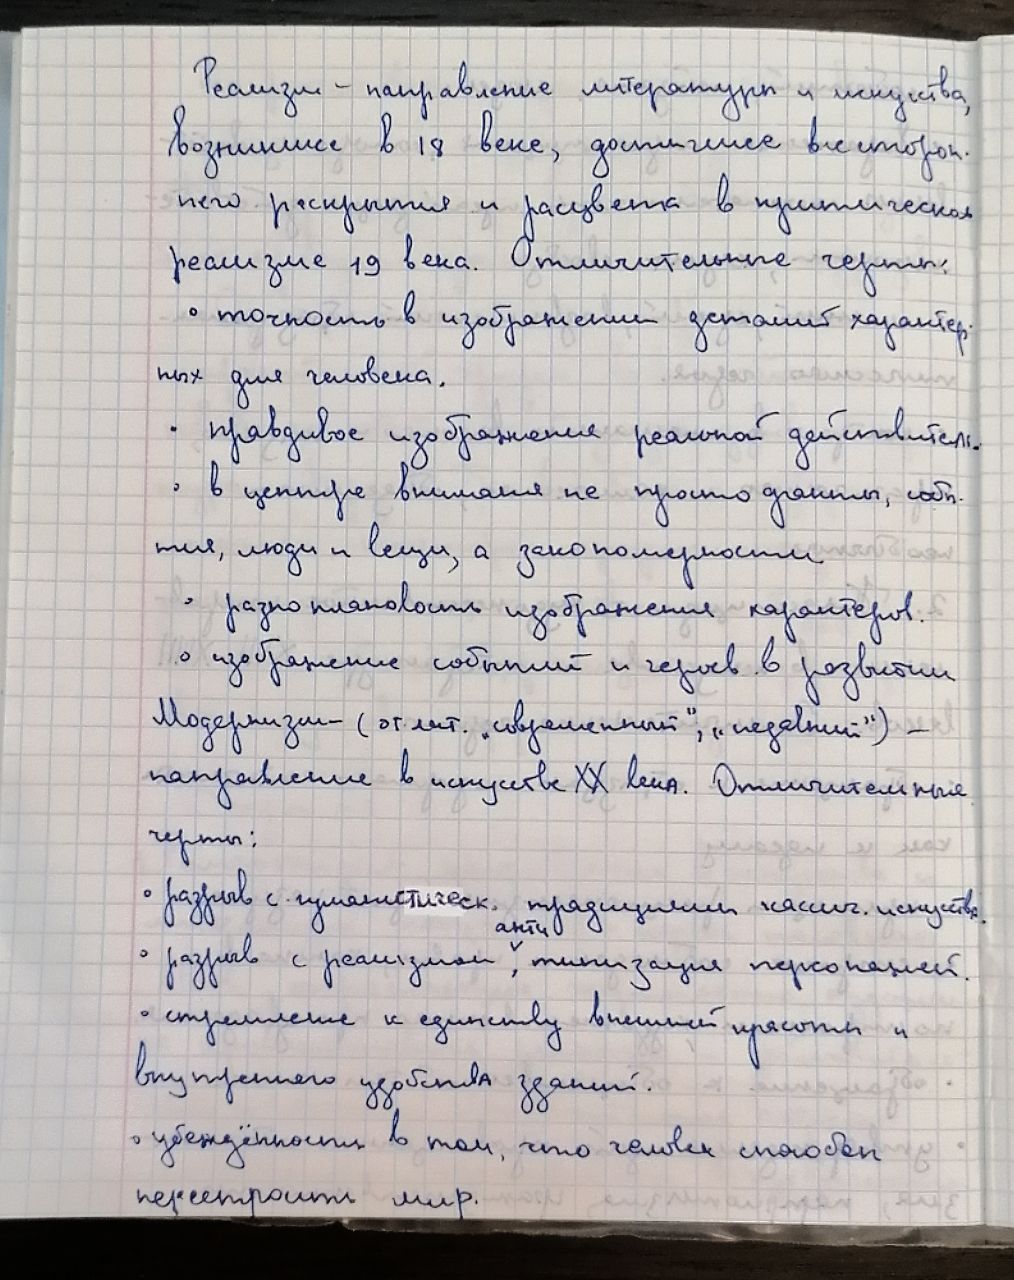 Реализм – направление литературы и искуства,
возникшее в 18 веке, достигшее всесторон-
него раскрытия и расцвета в критическом
реализме 19 века. Отличительные черты:
• точность в изображении деталей характер-
ных для человека.
• правдивое изображения реальной действитель.
• в центре внимания не просто факты, собы-
тия, люди и вещи, а закономерности
• разноплановость изображения характеров.
• изображение событий и героев в развитии
Модернизм – (от лат. „современный", „недавний") –
направление в искустве XX века. Отличительные
черты:
• разрыв с гуманистическ. традициями классич. искуства.
• разрыв с реализмом, анти типизация персонажей.
• стремление к единству внешней красоты и
внутреннего удобства зданий.
• убеждённость в том, что человек способен
перестроить мир.